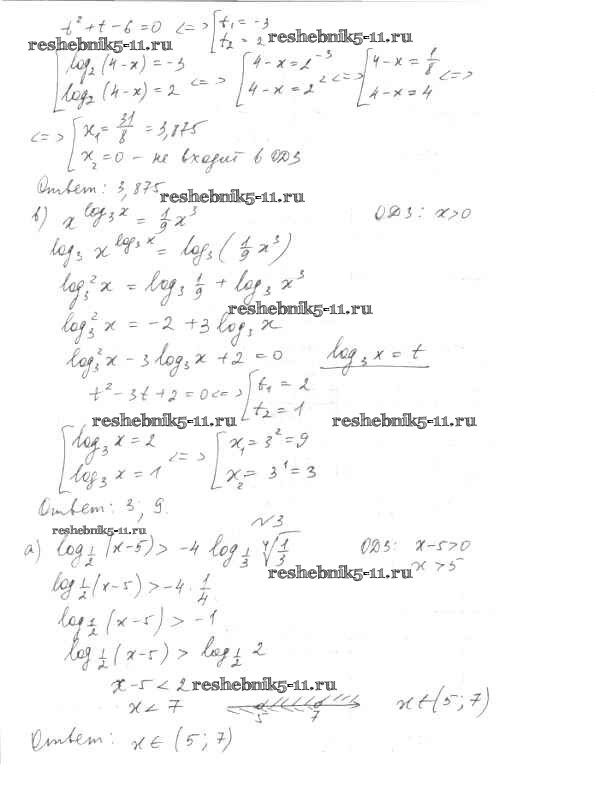 t² + t - 6 = 0 <=> [ t₁ = -3
t₂ = 2
reshebnik5-11.ru reshebnik5-11.ru
[ log₂(4-x) = -3 <=> [ 4-x = 2⁻³ <=> [ 4-x = 1/8 <=>
log₂(4-x) = 2 4-x = 2² 4-x = 4
<=> [ x₁ = 31/8 = 3,875
x₂ = 0 - не входит в ОДЗ
Ответ: 3,875
reshebnik5-11.ru
в) x^(log₃x) = 1/9 x³ ОДЗ: x>0
log₃ x^(log₃x) = log₃(1/9 x³)
log₃²x = log₃ 1/9 + log₃ x³
reshebnik5-11.ru
log₃²x = -2 + 3 log₃ x
log₃²x - 3 log₃x + 2 = 0 log₃x = t
t² - 3t + 2 = 0 <=> [ t₁ = 2
t₂ = 1
reshebnik5-11.ru reshebnik5-11.ru
[ log₃x = 2 <=> [ x₁ = 3² = 9
log₃x = 1 x₂ = 3¹ = 3
Ответ: 3; 9.
reshebnik5-11.ru
№3
а) log_(1/2)(x-5) > -4 log_(1/3) ⁴√(1/3) ОДЗ: x-5>0
x>5
reshebnik5-11.ru
log_(1/2)(x-5) > -4 · 1/4
log_(1/2)(x-5) > -1
log_(1/2)(x-5) > log_(1/2) 2
x-5 < 2
reshebnik5-11.ru
x < 7 5 7 x∈(5;7)
Ответ: x∈(5;7)